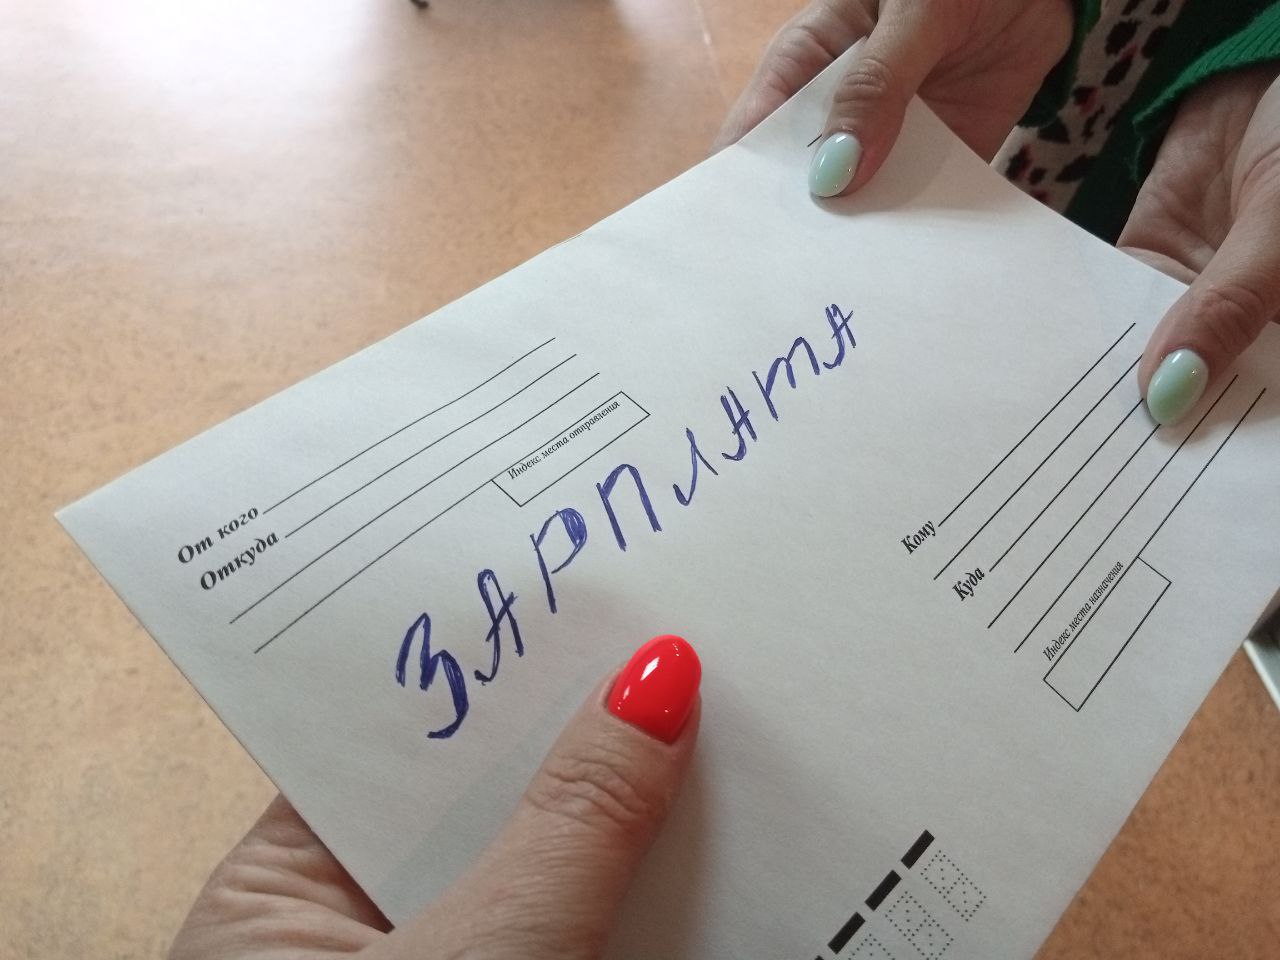 От кого
Откуда
Индекс места отправления
ЗАРПЛАТА
Кому
Куда
Индекс места назначения